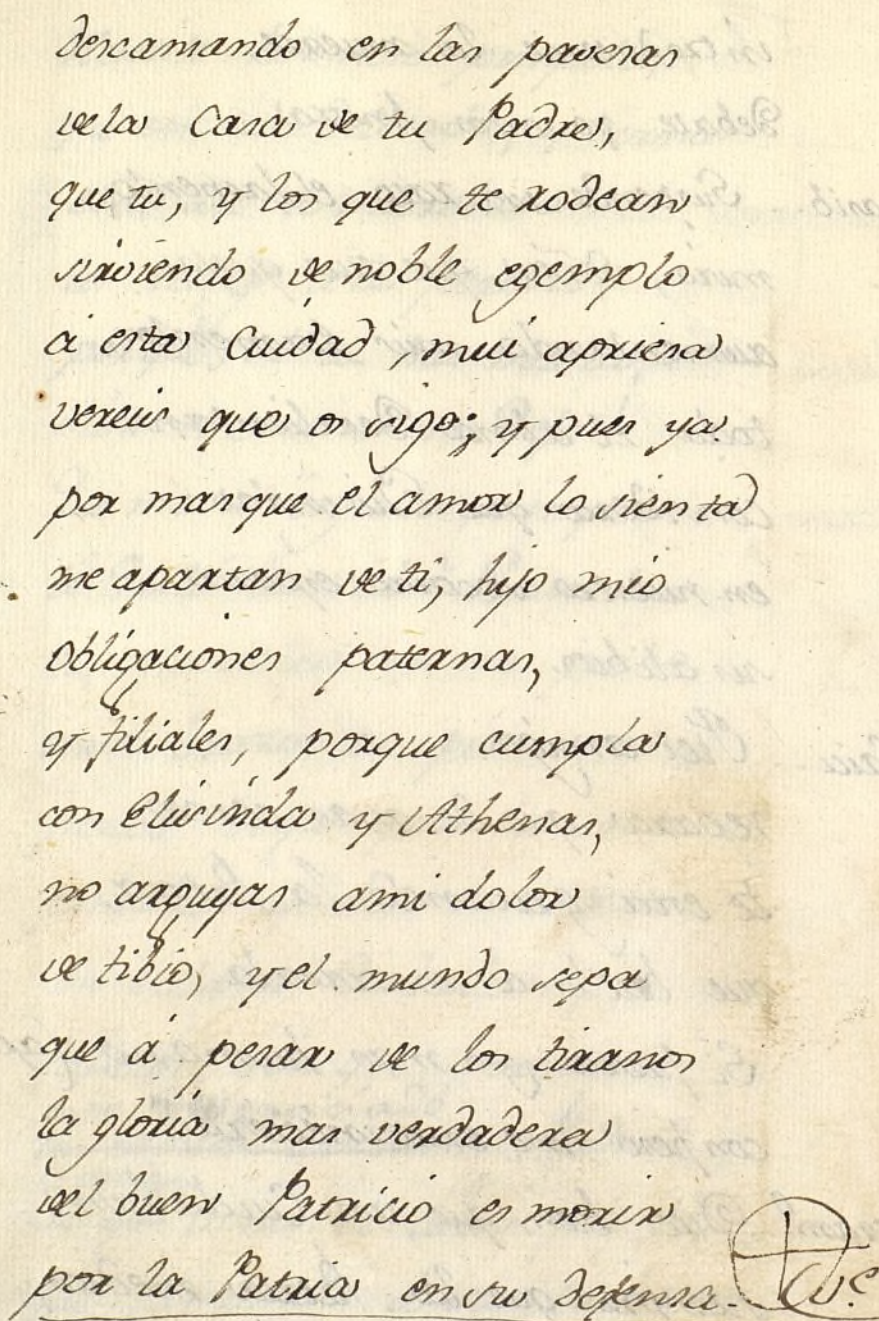 descansando en las pavesas
de la Casa de tu Padre,
que tu, y los que te rodean
sirviendo de noble egemplo
á esta Ciudad, mui apriesa
vereis que os sigo; y pues ya
por mas que el amor lo sienta
me apartan de ti, hijo mio
obligaciones paternas,
y filiales, porque cumpla
con Elisinda y Athenas,
no arguyas ami dolor
de tibio, y el mundo sepa
que á pesar de los tiranos
la gloria mas verdadera
del buen Patricio es morir
por la Patria en su defensa.